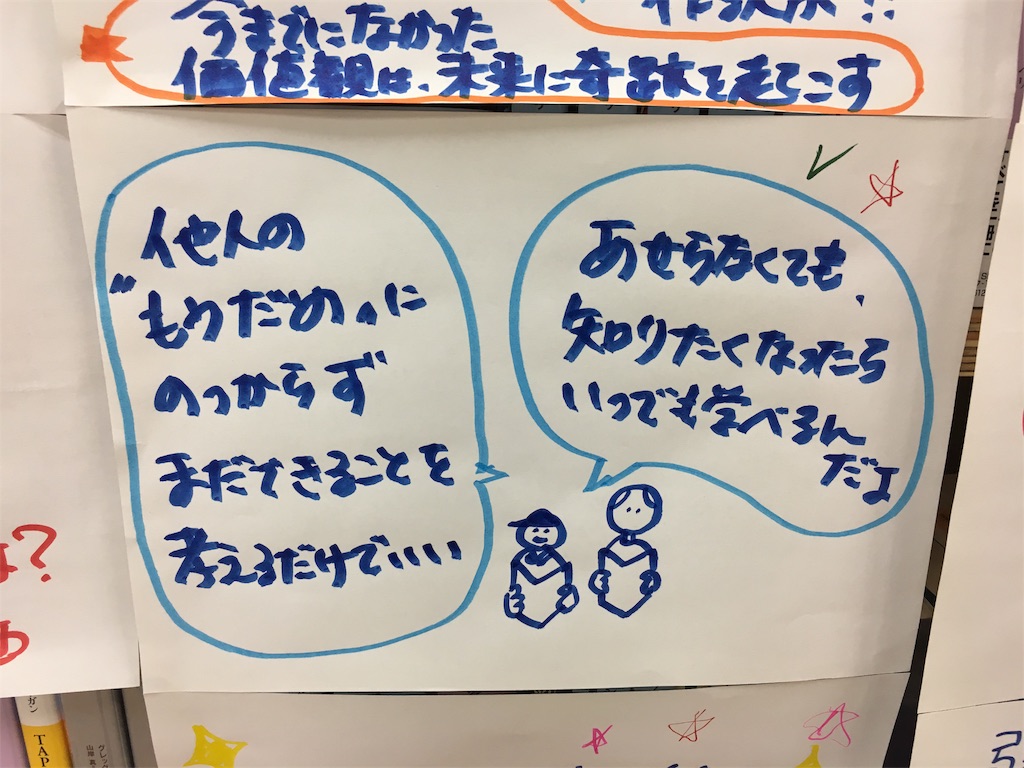 今までになかった
価値観は、未来に奇跡を起こす
他人の
"もうだめ"に
のっからず
まだできることを
考えるだけでいい
あせらなくても、
知りたくなったら
いつでも学べるん
だよ
は?
ガン
TAP
グレッグ